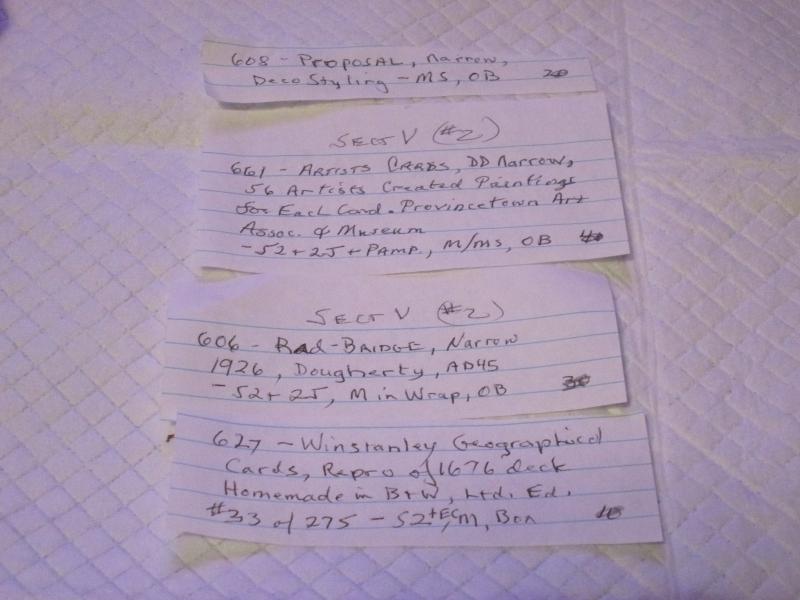 608 - PROPOSAL, Narrow,
Deco Styling - MS, OB 20
SECT V (#2)
661 - ARTISTS CARDS, DD Narrow,
56 Artists Created Paintings
for Each Card. Provincetown Art
Assoc. & Museum
- 52 + 2J + PAMP., M/MS, OB
SECT V (#2)
606 - Rad-BRIDGE, Narrow
1926, Dougherty, AD45
- 52 + 2J, M in Wrap, OB 30
627 - Winstanley Geographical
Cards, Repro of 1676 deck
Homemade in B+W, Ltd. Ed.
#33 of 275 - 52+EC, M, Box